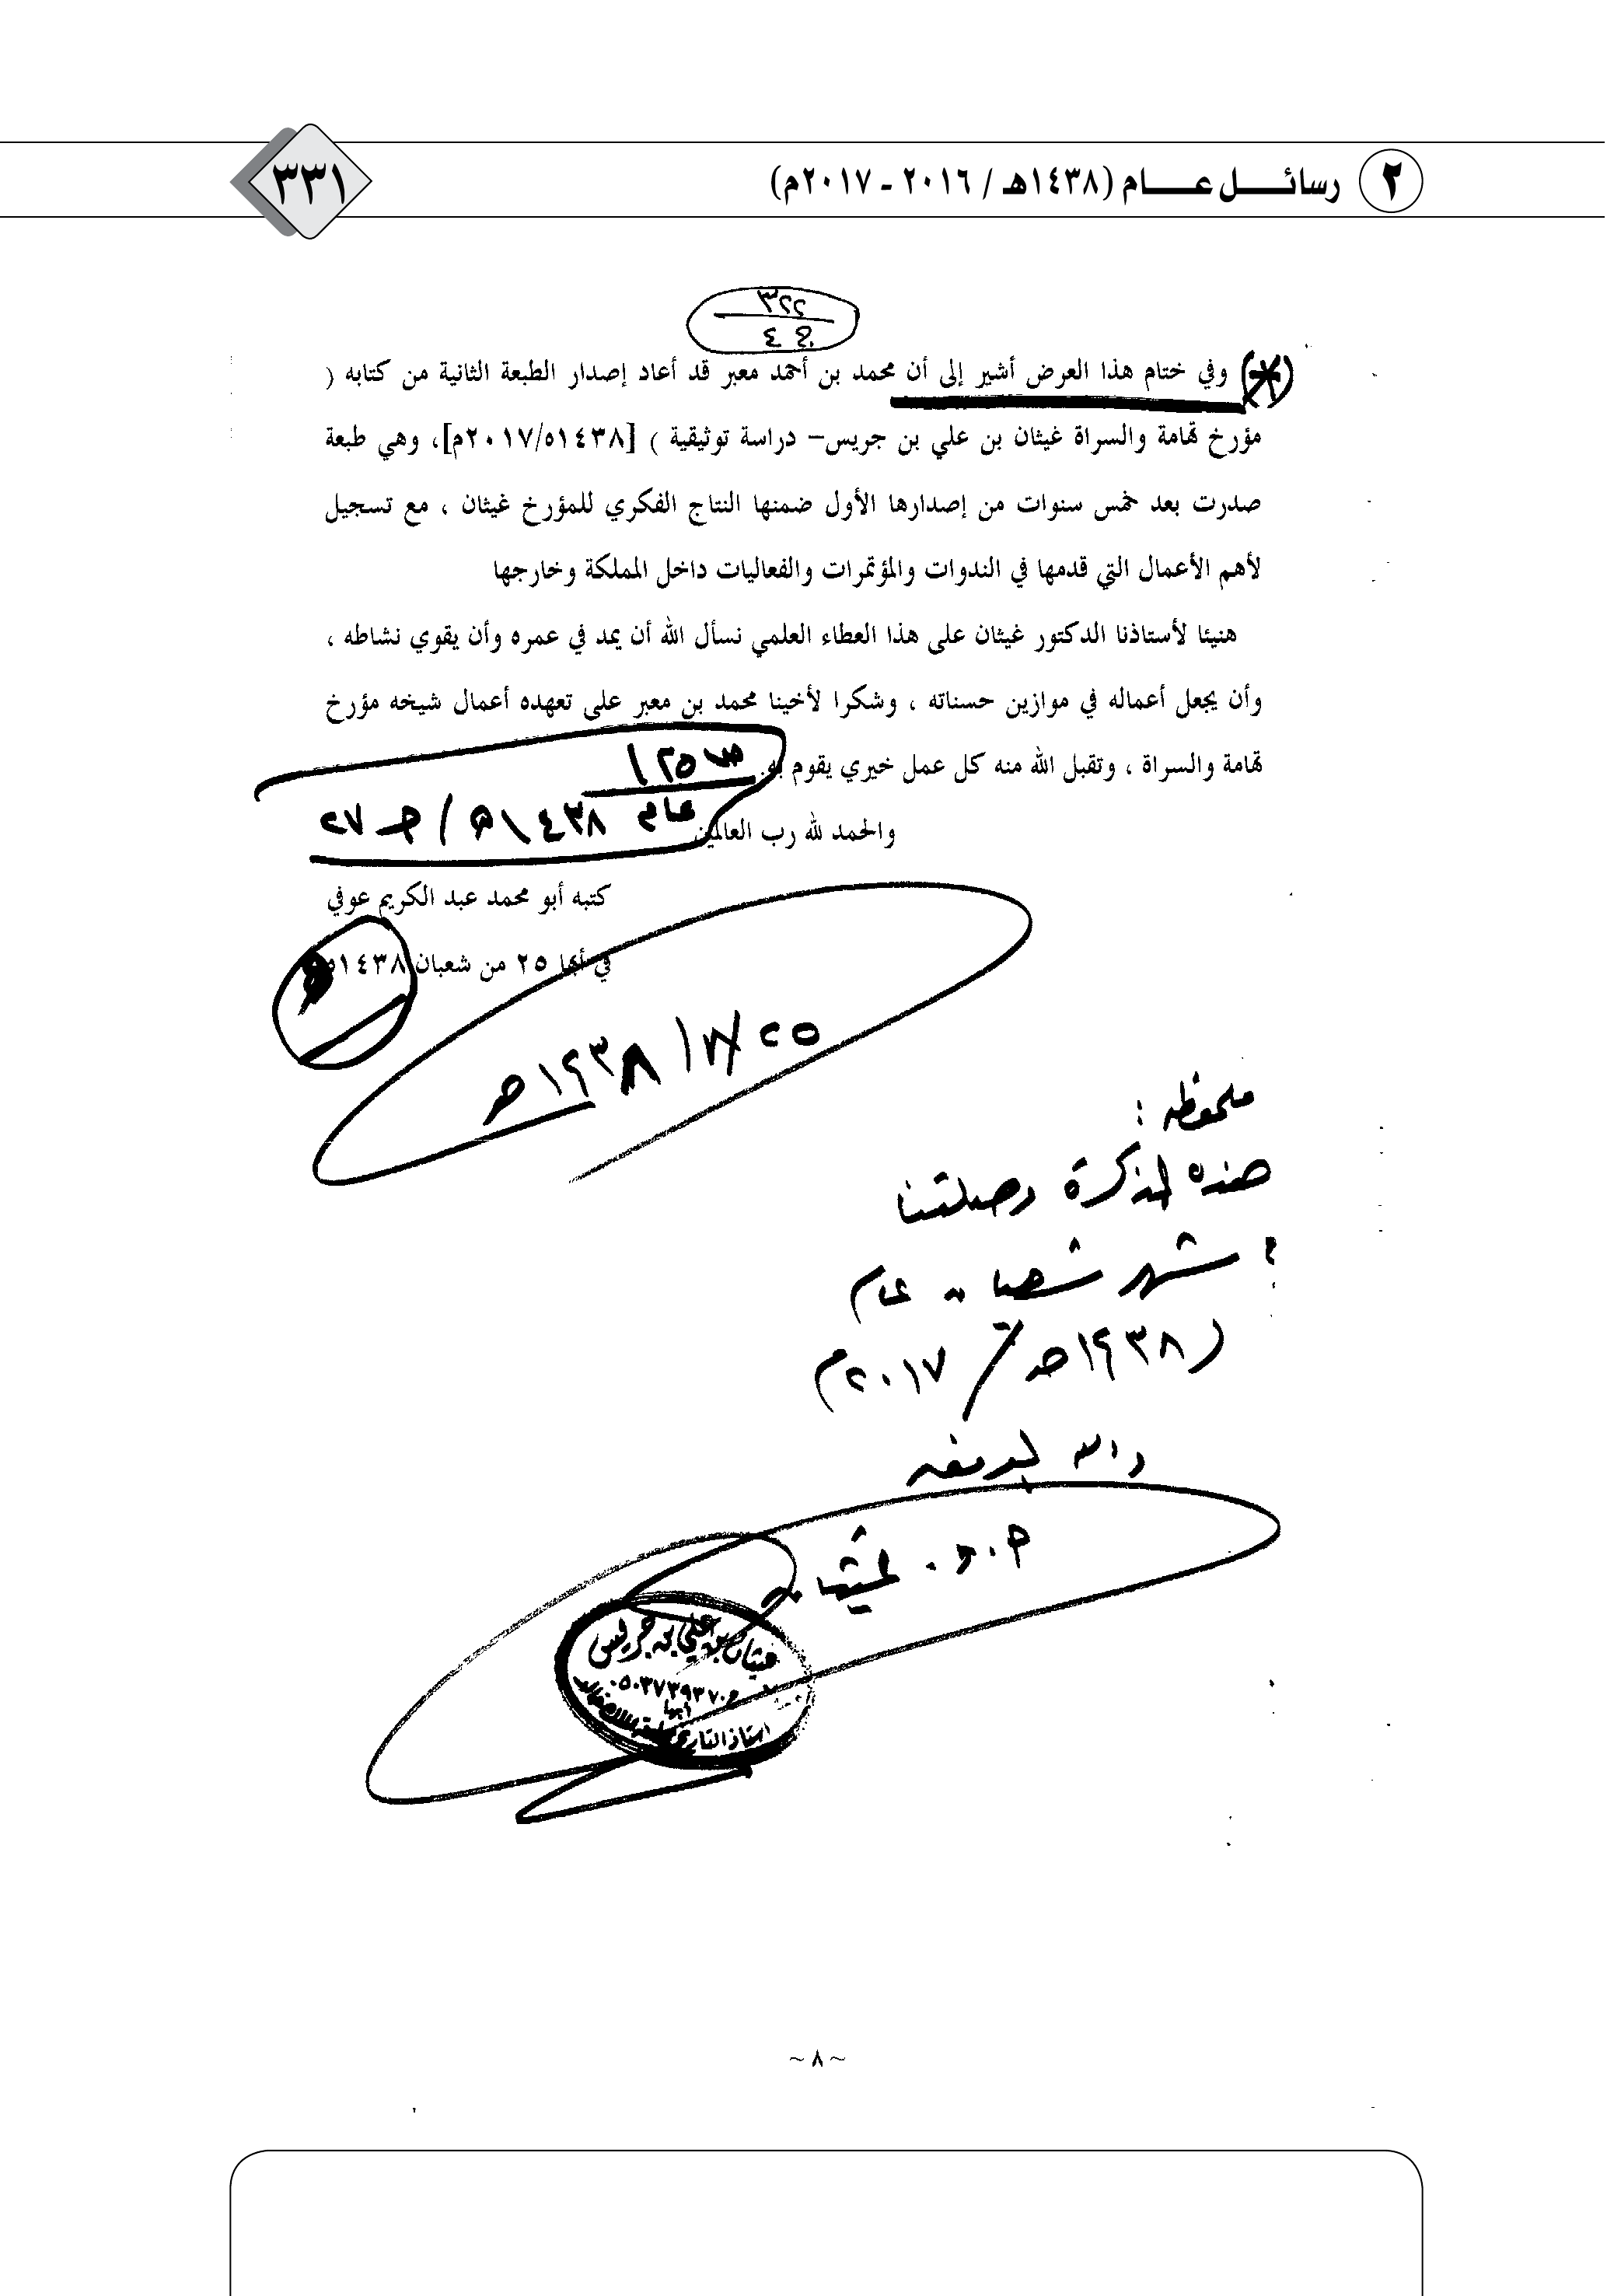 ٢ رسائل عام (١٤٣٨هـ / ٢٠١٦ - ٢٠١٧م)
٣٣١
٣٢٢
ج ٤
(*) وفي ختام هذا العرض أشير إلى أن محمد بن أحمد معبر قد أعاد إصدار الطبعة الثانية من كتابه (
مؤرخ تهامة والسراة غيثان بن علي بن جريس– دراسة توثيقية ) [١٤٣٨ه/٢٠١٧م]، وهي طبعة
صدرت بعد خمس سنوات من إصدارها الأول ضمنها النتاج الفكري للمؤرخ غيثان ، مع تسجيل
لأهم الأعمال التي قدمها في الندوات والمؤتمرات والفعاليات داخل المملكة وخارجها
هنيئا لأستاذنا الدكتور غيثان على هذا العطاء العلمي نسأل الله أن يمد في عمره وأن يقوي نشاطه ،
وأن يجعل أعماله في موازين حسناته ، وشكرا لأخينا محمد بن معبر على تعهده أعمال شيخه مؤرخ
تهامة والسراة ، وتقبل الله منه كل عمل خيري يقوم به.
ص ١٢٥
عام ١٤٣٨هـ / ج ٢٧
والحمد لله رب العالمين
كتبه أبو محمد عبد الكريم عوفي
في أبها ٢٥ من شعبان ١٤٣٨ه
١٤٣٨هـ
ملحوظة :
هذه المذكرة وصلتنا
شهر شعبان عام
١٤٣٨هـ / ٢٠١٧م
والله الموفق
أ.د. غيثان
غيثان بن علي بن جريس
٠٥٠٣٧٣٩٣٧٠
أبها
أستاذ التاريخ
~ ٨ ~